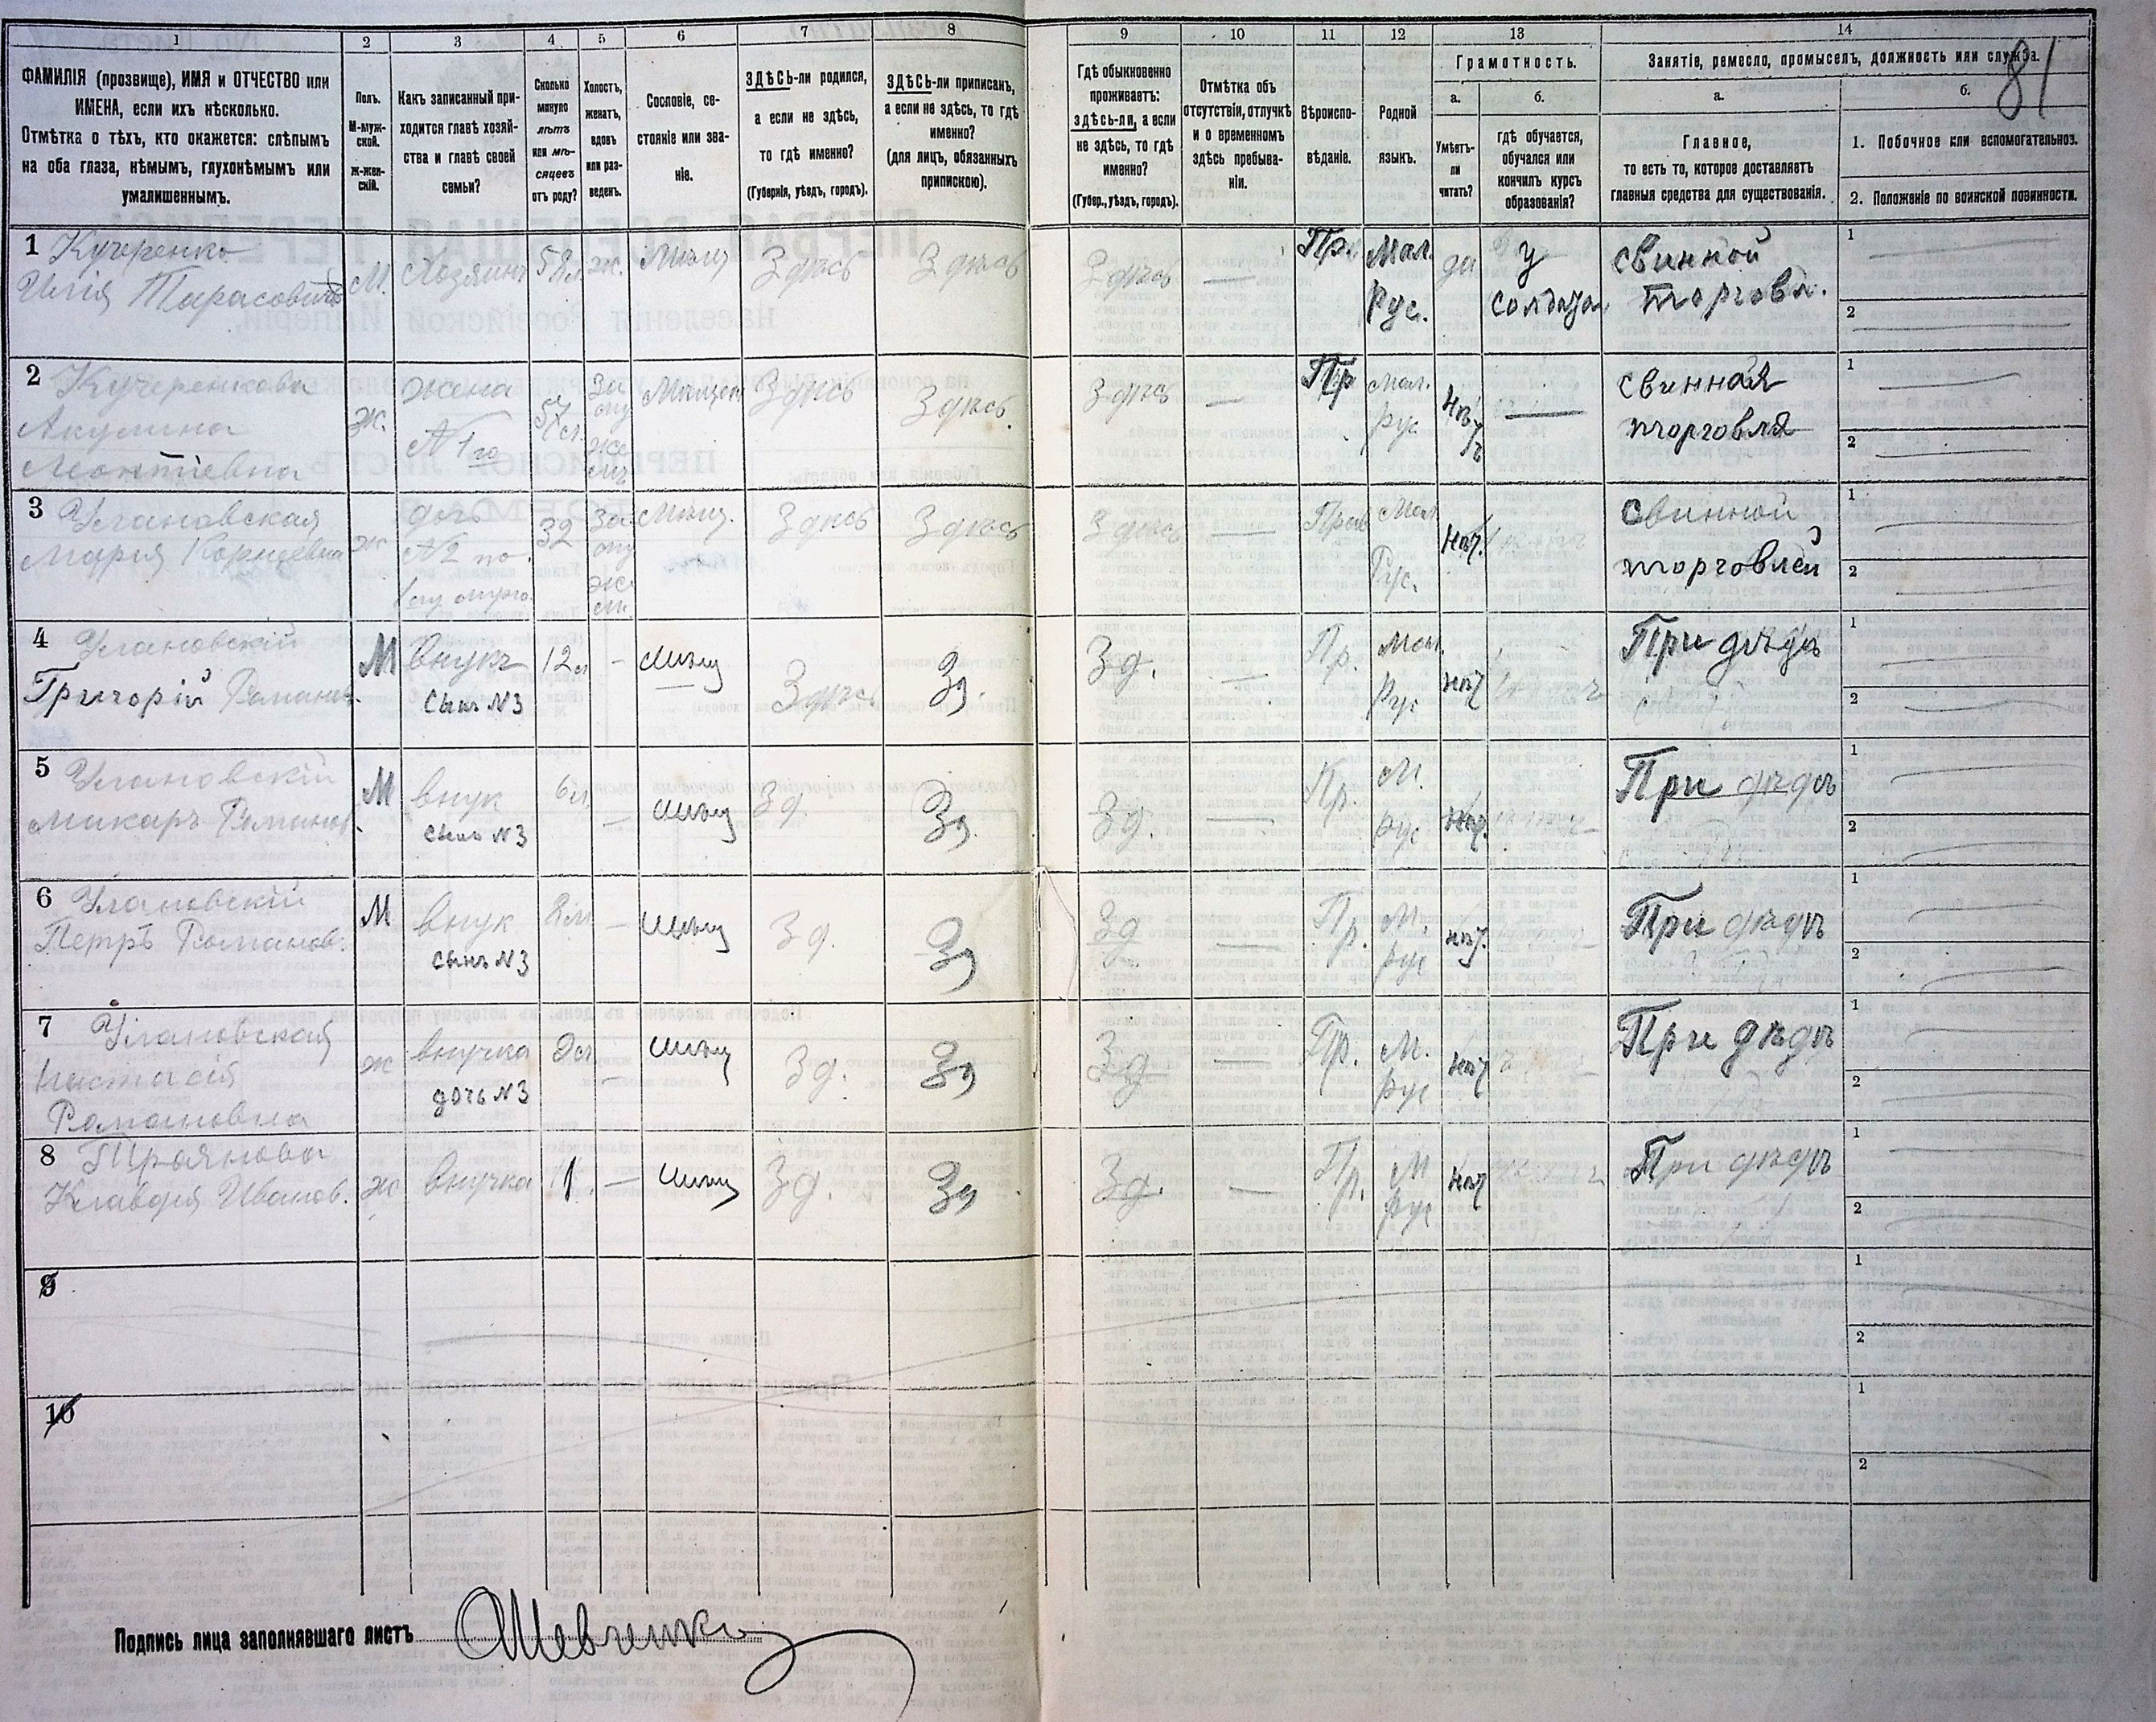 1 2 3 4 5 6 7 8 9 10 11 12 13 14
81
ФАМИЛІЯ (прозвище), ИМЯ и ОТЧЕСТВО или
ИМЕНА, если ихъ нѣсколько.
Отмѣтка о тѣхъ, кто окажется: слѣпымъ
на оба глаза, нѣмымъ, глухонѣмымъ или
умалишеннымъ.
Полъ.
М-муж-
ской.
Ж-жен-
скій.
Какъ записанный при-
ходится главѣ хозяй-
ства и главѣ своей
семьи?
Сколько
минуло
лѣтъ
или мѣ-
сяцевъ
отъ роду?
Холостъ,
женатъ,
вдовъ
или раз-
веденъ.
Сословіе, со-
стояніе или зва-
ніе.
ЗДѢСЬ-ли родился,
а если не здѣсь,
то гдѣ именно?
(Губернія, уѣздъ, городъ).
ЗДѢСЬ-ли приписанъ,
а если не здѣсь, то гдѣ
именно?
(для лицъ, обязанныхъ
припискою).
Гдѣ обыкновенно
проживаетъ:
здѣсь-ли, а если
не здѣсь, то гдѣ
именно?
(Губер., уѣздъ, городъ).
Отмѣтка объ
отсутствіи, отлучкѣ
и о временномъ
здѣсь пребыва-
ніи.
Вѣроиспо-
вѣданіе.
Родной
языкъ.
Грамотность.
а.
Умѣетъ-
ли
читать?
б.
гдѣ обучается,
обучался или
кончилъ курсъ
образованія?
Занятіе, ремесло, промыселъ, должность или служба.
а.
Главное,
то есть то, которое доставляетъ
главныя средства для существованія.
б.
1. Побочное или вспомогательное.
2. Положеніе по воинской повинности.
1 Кучеренко
Илія Тарасовичъ
М.
Хозяинъ
58 л.
ж.
Мѣщ
Здѣсь
Здѣсь
Здѣсь
—
Пр.
Мал.
Рус.
да
у
солдата
свинной
торговл.
1
2
2 Кучеренкова
Акулина
Леонтіевна
ж.
жена
№ 1го
Здѣсь
Здѣсь.
Здѣсь
—
Пр
мал.
рус
—
свинная
торговля
1
2
3 Улановская
Мария
ж
дочь
№ 2
32
Мѣщ.
Здѣсь
Здѣсь
Здѣсь
—
Прав
Мал
Рус.
нѣт.
свинной
торговлей
1
2
4 Улановскій
Григорій Романов.
М
Внукъ
Сынъ №3
12 л
-
Мѣщ
Здѣсь
Зд.
Зд.
—
Пр.
Мал.
Рус
нѣт
При дѣдѣ
1
2
5 Улановскій
Макаръ Романов.
М
внук
сынъ №3
6 л.
—
Мѣщ
Зд.
Зд.
Зд.
—
Пр.
М.
рус
нѣт.
При дѣдѣ
1
2
6 Улановскій
Петръ Романов.
М
внук
сынъ №3
—
Мѣщ
Зд.
Зд
Зд
—
Пр.
М.
рус
нѣт.
При дѣдѣ
1
2
7 Улановская
Настасія
Романовна
ж
внучка
дочь №3
—
Мѣщ
Зд.
Зд
Зд
—
Пр.
М.
рус
нѣт
При дѣдѣ
1
2
8 Троянова
Клавдія Иванов.
ж
внучка
1.
—
Мѣщ
Зд.
Зд
Зд.
—
Пр.
М
рус
нѣт
При дѣдѣ
1
2
9
1
2
10
1
2
Подпись лица заполнявшаго листъ
Шевченко